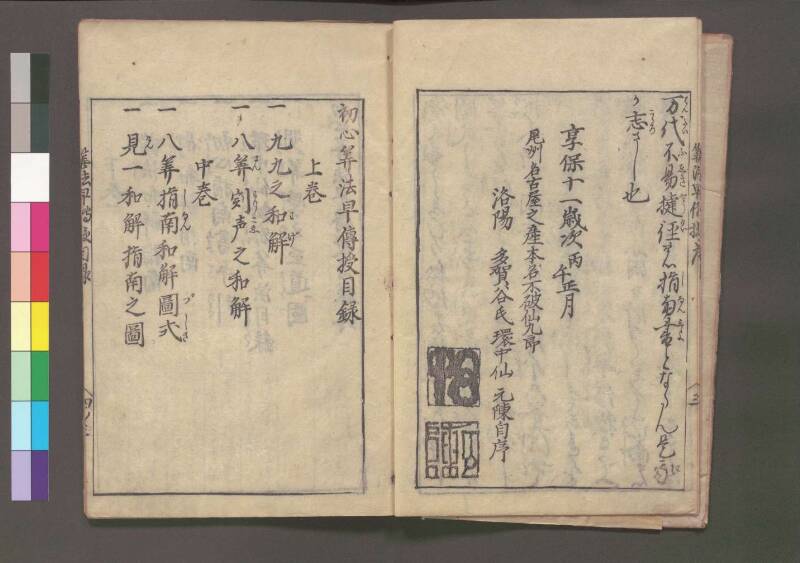 万代不易捷径の指南車とならん是予
が志さし也
享保十一歳次丙午正月
尾州名古屋之産本名不破仙九郎
洛陽 多賀谷氏環中仙 元陳自序
初心算法早傳授目録
上巻
一 九九之和解
一 八算割声之和解
中巻
一 八算指南和解圖式
一 見一和解指南之圖